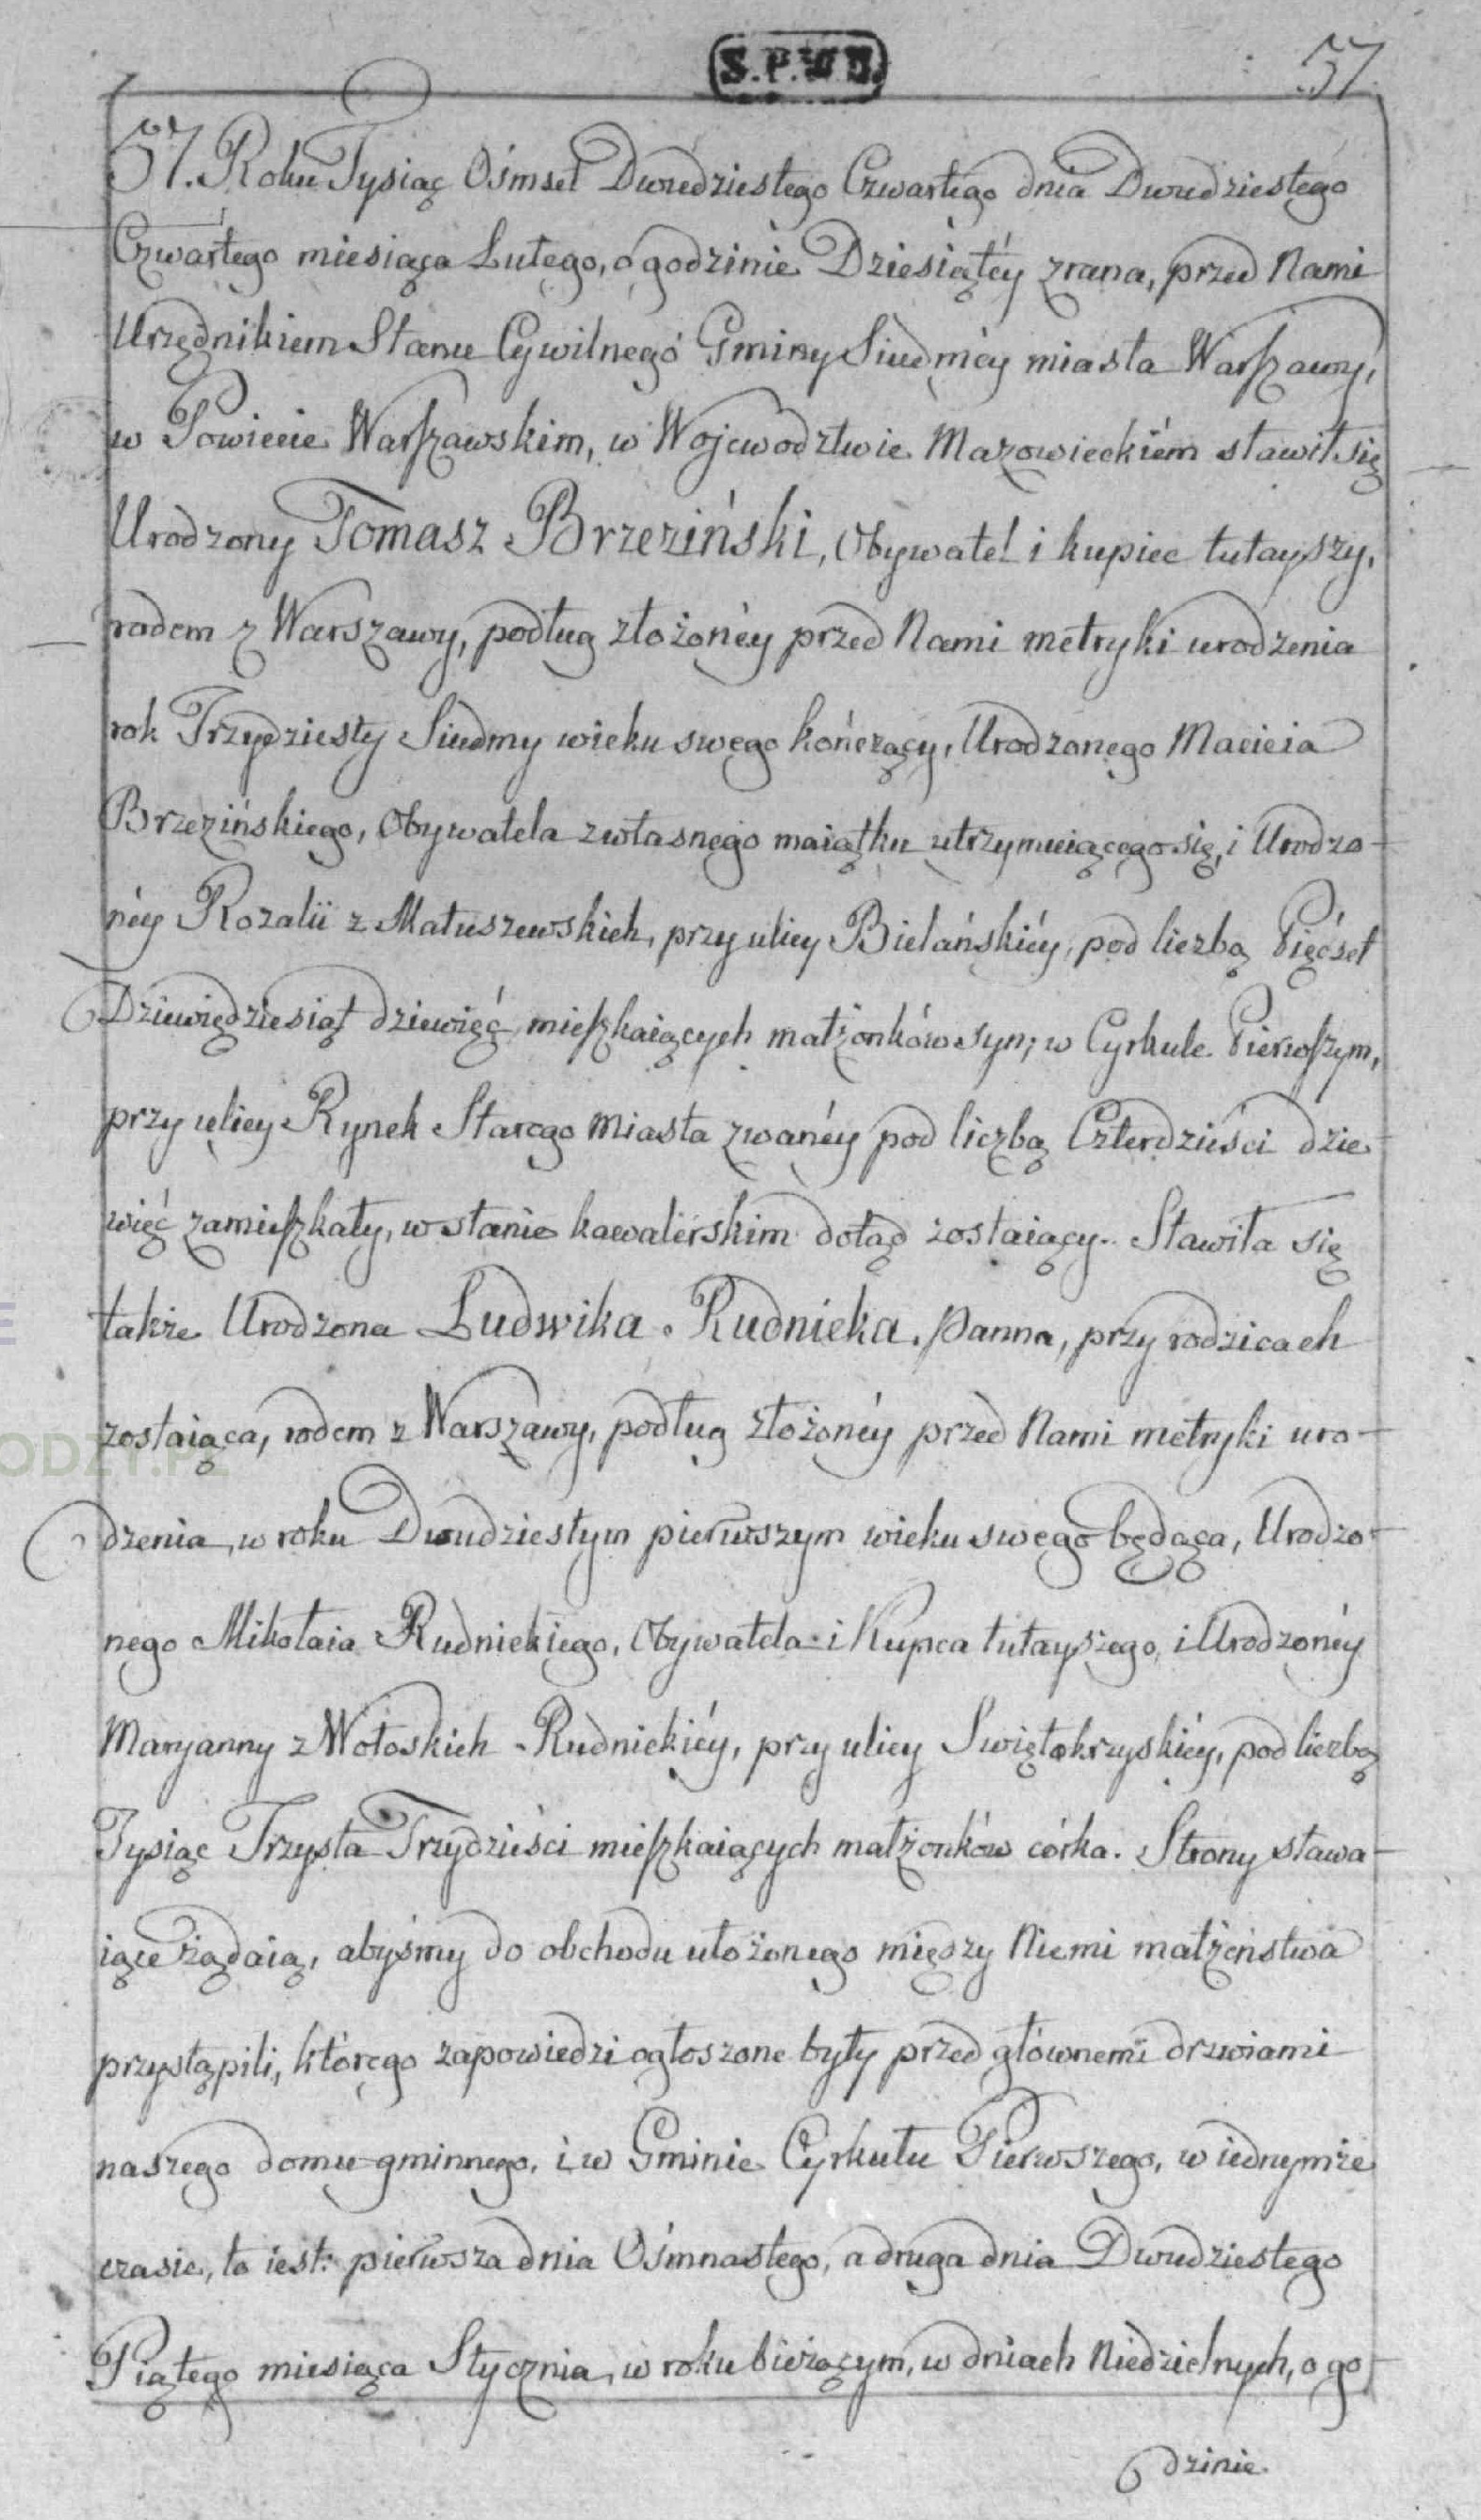 S.P.W.D.
57.
57. Roku Tysiąc Ośmset Dwudziestego Czwartego dnia Dwudziestego
Czwartego miesiąca Lutego, o godzinie Dziesiątéy zrana, przed Nami
Urzędnikiem Stanu Cywilnego Gminy Siudméy miasta Warszawy,
w Powiecie Warszawskim, w Wojewodztwie Mazowieckiém stawił się
Urodzony Tomasz Brzeziński, Obywatel i kupiec tutayszy,
rodem z Warszawy, podług złożonéy przed Nami metryki urodzenia
rok Trzydziesty Siudmy wieku swego kończący, Urodzonego Macieia
Brzezińskiego, Obywatela z własnego maiątku utrzymuiącego się, i Urodzo-
néy Rozalii z Matuszewskich, przy ulicy Bielańskiéy, pod liczbą Pięćset
Dziewiędziesiąt dziewięć mieszkaiących małżonków syn; w Cyrkule Pierwszym,
przy ulicy Rynek Starego Miasta zwanéy pod liczbą Czterdzieści dzie
więć zamieszkały, w stanie kawalerskim dotąd zostaiący. Stawiła się
także Urodzona Ludwika Rudnicka. Panna, przy rodzicach
zostaiąca, rodem z Warszawy, podług złożonéy przed Nami metryki uro-
dzenia, w roku Dwudziestym pierwszym wieku swego będąca, Urodzo-
nego Mikołaia Rudnickiego, Obywatela i Kupca tutayszego, i Urodzonéy
Maryanny z Wołoskich Rudnickiéy, przy ulicy Swiętokrzyskiéy, pod liczbą
Tysiąc Trzysta Trzydzieści mieszkaiących małżonków córka. Strony stawa-
iące żądaią, abyśmy do obchodu ułożonego między Niemi małżeństwa
przystąpili, którego zapowiedzi ogłoszone były przed głównemi drzwiami
naszego domu gminnego, i w Gminie Cyrkułu Pierwszego, w iednymże
czasie, to iest: pierwsza dnia Ośmnastego, a druga dnia Dwudziestego
Piątego miesiąca Stycznia, w roku bieżącym, w dniach Niedzielnych, o go-
dzinie
ODZY.PL